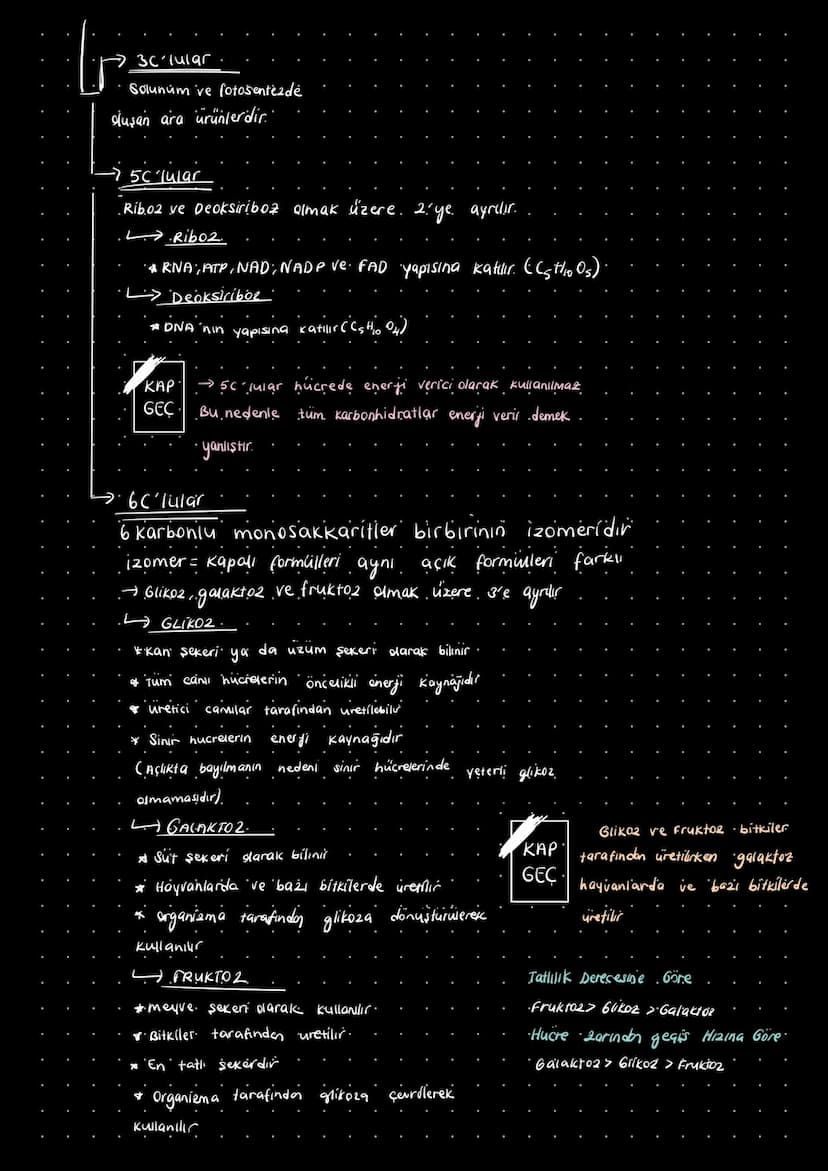 → 3C'lular
Solunum ve fotosentezde
oluşan ara ürünlerdir.
→ 5C'lular
Riboz ve Deoksiriboz olmak üzere 2'ye ayrılır.
↳ Riboz
* RNA, ATP, NAD, NADP ve FAD yapısına katılır. (C₅H₁₀O₅)
↳ Deoksiriboz
* DNA'nın yapısına katılır (C₅H₁₀O₄)
KAP
GEÇ
→ 5C'lular hücrede enerji verici olarak kullanılmaz
Bu nedenle tüm karbonhidratlar enerji verir demek
yanlıştır.
→ 6C'lular
6 karbonlu monosakkaritler birbirinin izomeridir
izomer = kapalı formülleri aynı açık formülleri farklı
→ Glikoz, galaktoz ve fruktoz olmak üzere 3'e ayrılır
↳ GLİKOZ
* Kan şekeri ya da üzüm şekeri olarak bilinir
* Tüm canlı hücrelerin öncelikli enerji kaynağıdır
* üretici canlılar tarafından üretilebilir
* Sinir hücrelerin enerji kaynağıdır
(Açlıkta bayılmanın nedeni sinir hücrelerinde yeterli glikoz
olmamasıdır).
↳ GALAKTOZ
* Süt şekeri olarak bilinir
* Hayvanlarda ve bazı bitkilerde üretilir
* organizma tarafından glikoza dönüştürülerek
kullanılır
KAP
GEÇ
Glikoz ve Fruktoz bitkiler
tarafından üretilirken galaktoz
hayvanlarda ve bazı bitkilerde
üretilir
↳ FRUKTOZ
* meyve şekeri olarak kullanılır
* Bitkiler tarafından üretilir
* En tatlı şekerdir
* Organizma tarafından glikoza çevrilerek
kullanılır
Tatlılık Derecesine Göre
Fruktoz > Glikoz > Galaktoz
Hücre zarından geçiş Hızına Göre
Galaktoz > Glikoz > Fruktoz